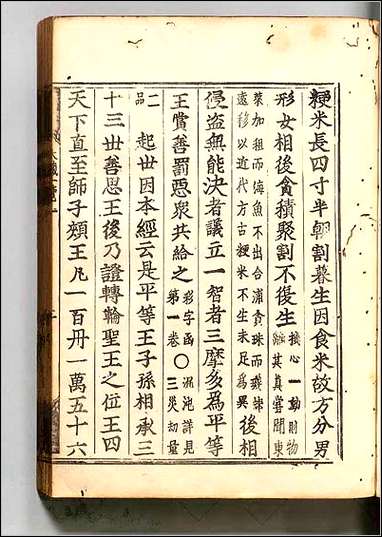 粳米長四寸半朝割暮生因食米故方分男
形女相後貪積聚割不復生
按心一動則物
離其真嘗聞東
萊加租而海魚不出合浦貪珠而珠
遠移以近代方古粳米不生未足為異
後相
侵盜無能決者議立一智者三摩多為平等
王賞善罰惡衆共給之
彩字函
第一卷
〇
沌詳見
三災劫量
二
品
起世因本經云是平等王子孫相承三
十三世善思王後乃證轉輪聖王之位王四
天下直至師子頰王凡一百卌一萬五十六